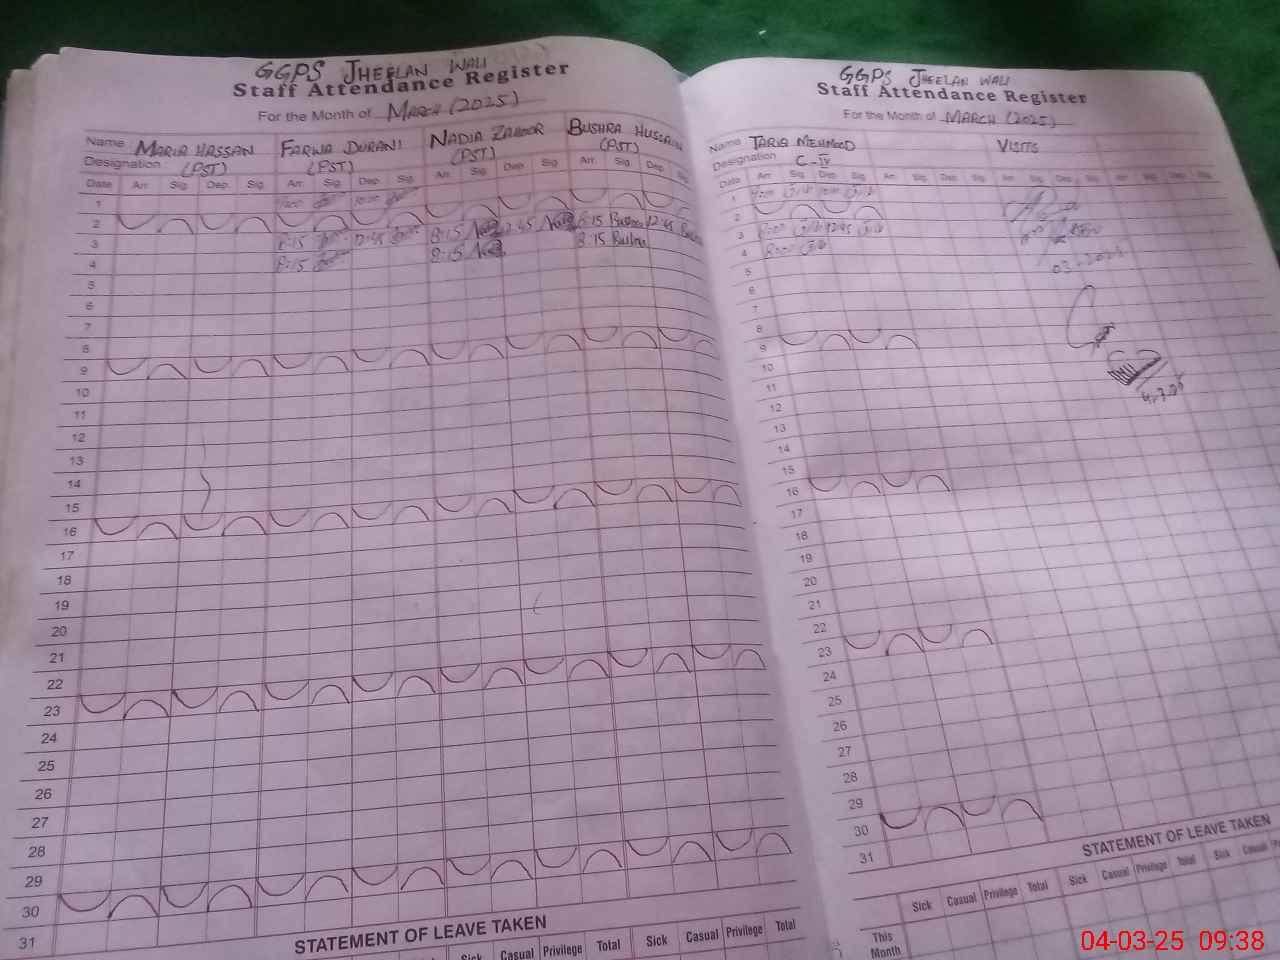 GGPS JHEELAN WALI
Staff Attendance Register
For the Month of MARCH (2025)
Name MARIA HASSAN FARWA DURANI NADIA ZAHOOR BUSHRA HUSSAIN
Designation (PST) (PST) (PST) (PST)
Date Arr. Sig. Dep. Sig. Arr. Sig. Dep. Sig. Arr. Sig. Dep. Sig. Arr. Sig. Dep. Sig.
1
2
3 8:15 12:45 8:15 12:45 8:15 Bushra 12:45 Bushra
4 8:15 8:15 8:15 Bushra
5
6
7
8
9
10
11
12
13
14
15
16
17
18
19
20
21
22
23
24
25
26
27
28
29
30
31
STATEMENT OF LEAVE TAKEN
Sick Casual Privilege Total Sick Casual Privilege Total
GGPS JHEELAN WALI
Staff Attendance Register
For the Month of MARCH (2025)
Name TARIQ MEHMOOD VISITS
Designation C-IV
Date Arr. Sig. Dep. Sig. Arr. Sig. Dep. Sig. Arr. Sig. Dep. Sig. Arr. Sig. Dep. Sig.
1
2
3 8:00 12:45
4 8:00
5
6
7
8
9
10
11
12
13
14
15
16
17
18
19
20
21
22
23
24
25
26
27
28
29
30
31
STATEMENT OF LEAVE TAKEN
Sick Casual Privilege Total Sick Casual
This
Month
04-03-25 09:38